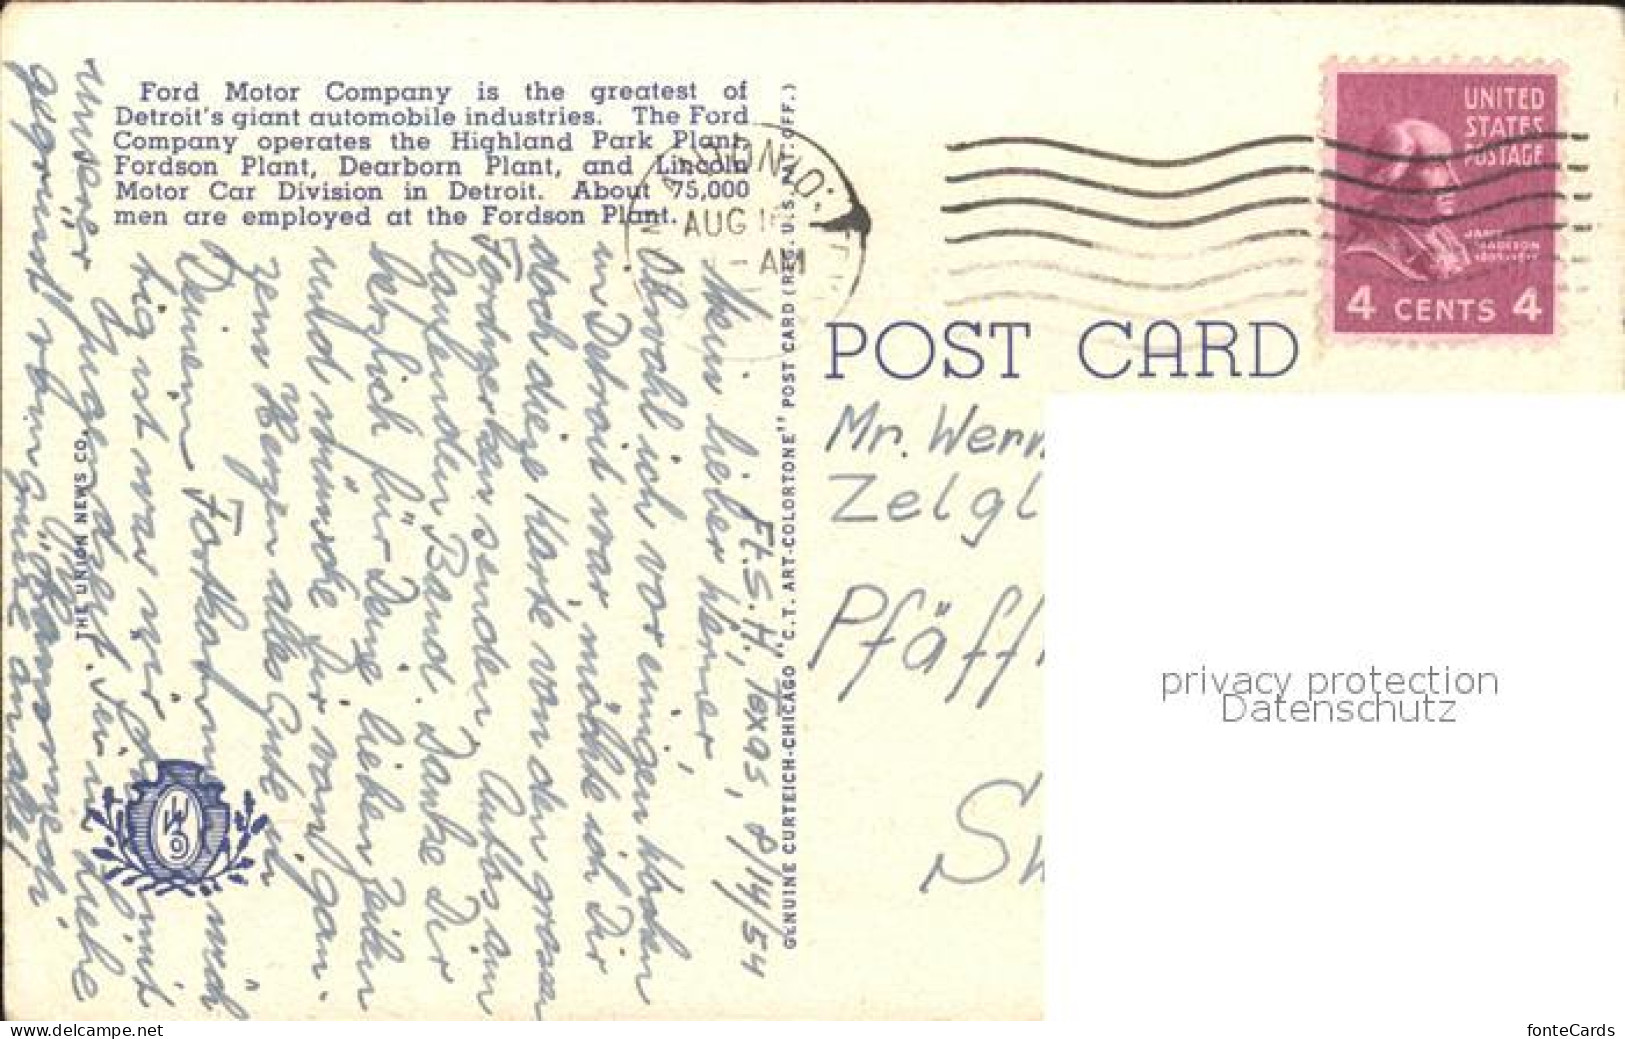 Ford Motor Company is the greatest of
Detroit's giant automobile industries. The Ford
Company operates the Highland Park Plant,
Fordson Plant, Dearborn Plant, and Lincoln
Motor Car Division in Detroit. About 75,000
men are employed at the Fordson Plant.
THE UNION NEWS CO.
GENUINE CURTEICH-CHICAGO "C.T. ART-COLORTONE" POST CARD (REG. U.S. PAT. OFF.)
AUG 16
AM
UNITED
STATES
POSTAGE
JAMES
MADISON
4 CENTS 4
POST CARD
Ft. S. H., Texas, 8/14/54
Mein lieber Werner,
Obwohl ich vor einigen Wochen
in Detroit war, möchte ich Dir
doch diese Karte von den grossen
Fordwerken senden, Autos am
laufenden Band. Danke Dir
herzlich für Deine lieben Zeilen
und wünsche Dir von gan-
zem Herzen alles Gute zu
Deinem
mit
unserer Jugendzeit. Sei in Liebe
gegrüsst
Mr. Wern
Zelgl
Pfäff
privacy protection
Datenschutz
www.delcampe.net
fonteCards